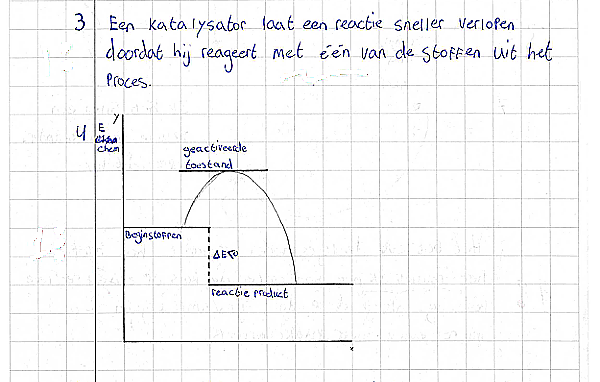 3 Een katalysator laat een reactie sneller verlopen
doordat hij reageert met één van de stoffen uit het
Proces.
y
4 E
chem
geactiveerde
toestand
Beginstoffen
ΔE<0
reactie product
x